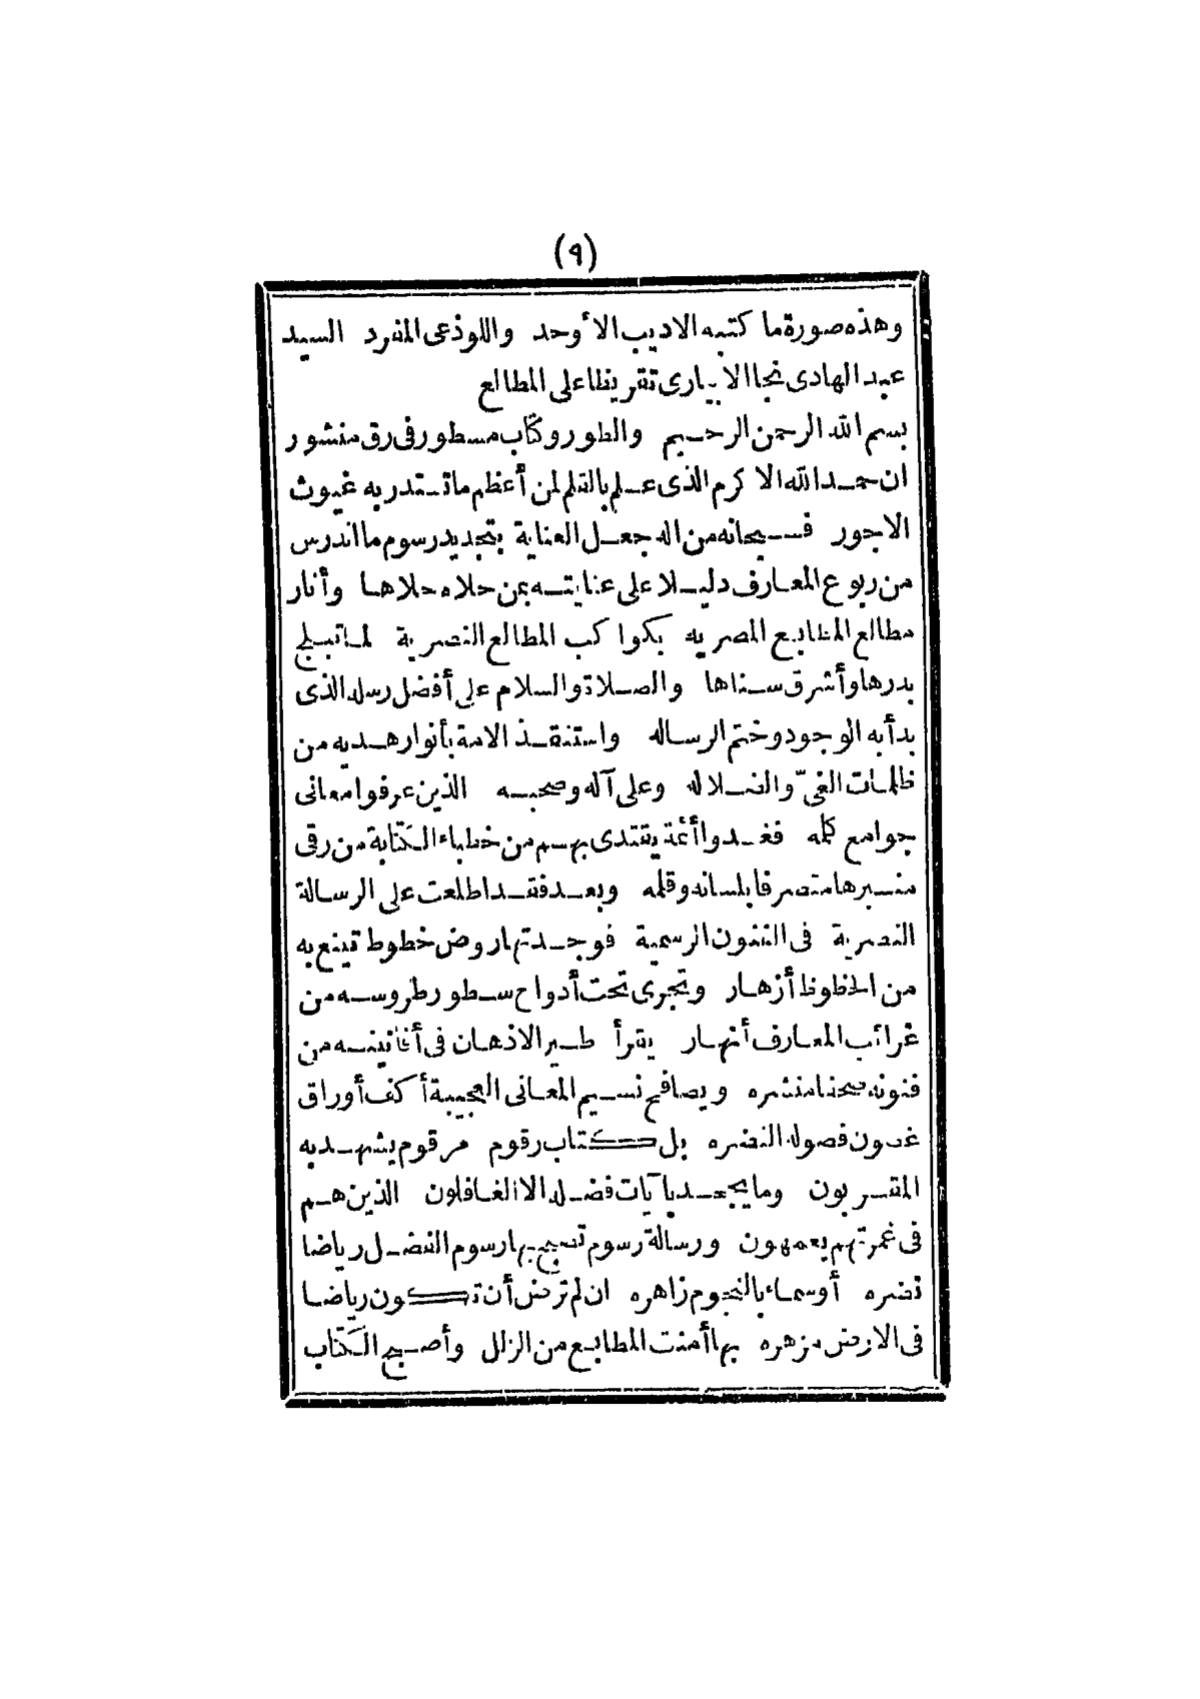 (٩)
وهذه صورة ما كتبه الاديب الأوحد واللوذعى المفرد السيد
عبد الهادى نجا الأبيارى تقريظا على المطالع
بسم الله الرحمن الرحيم والطور وكتاب مسطور فى رق منشور
ان حمد الله الاكرم الذى علم بالقلم لمن أعظم ما تستدر به غيوث
الاجور فسبحانه من اله جعل العناية بتجديد رسوم ما اندرس
من ربوع المعارف دليلا على عنايته بمن حلاه حلاها وأنار
مطالع المطابع المصريه بكواكب المطالع النصرية لما تبلج
بدرها وأشرق سناها والصلاة والسلام على أفضل رسله الذى
بدأ به الوجود وختم الرساله واستنقذ الامة بأنوار هديه من
ظلمات الغىّ والضلاله وعلى آله وصحبه الذين عرفوا معانى
جوامع كلمه فغدوا أئمة يقتدى بهم من خطباء الكتابة من رقى
منبرها متصرفا بلسانه وقلمه وبعد فقد اطلعت على الرسالة
النصرية فى الفنون الرسمية فوجدتها روض خطوط تينع به
من الحظوظ أزهار وتجرى تحت أدواح سطور طروسه من
غرائب المعارف أنهار يقرأ طير الاذهان فى أفانينه من
فنونه صحفا منشره ويصافح نسيم المعانى العجيبة أكف أوراق
غصون فصوله النضره بل كتاب رقوم مرقوم يشهد به
المقربون وما يجحد بآيات فضله الا الغافلون الذين هم
فى غمرتهم يعمهون ورسالة رسوم تصبح بها رسوم الفضل رياضا
نضره أو سماء بالنجوم زاهره ان لم ترض أن تكون رياضا
فى الارض مزهره بها أمنت المطابع من الزلل وأصبح الكتاب